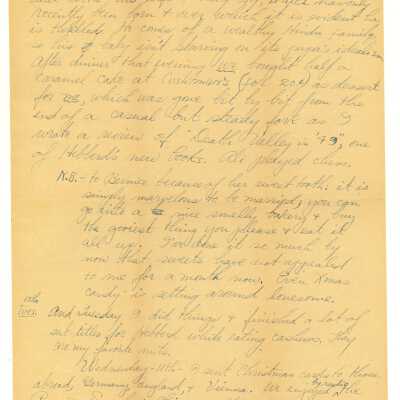 recently been born & over which it is evident he
is No. of a wealthy Hindu family,
so this baby isn't starving on its papa's ideas.
After dinner that evening we bought half a
caramel cake at Cushman's (for 20¢) as dessert
for us, which was gone bit by bit from the
end of a casual but steady fork as I
wrote a review of "Death Valley in '49", one
of Hebberd's new books. Al played chess.
N.B. - to Bernice because of her sweet tooth: it is
simply marvelous to be married, you can
go into a nice smelly bakery & buy
the gooiest thing you please & eat it
all up. I've done it so much by
now that sweets have not appealed
to me for a month now. Even Xmas
candy is sitting around lonesome.
And Tuesday I did things & finished a lot of
sub titles for Hebberd while eating cashews. They
are my favorite nuts.
Wednesday - 11th - I sent Christmas cards to those
abroad, Germany, England, & Vienna. We enjoyed the
by radio